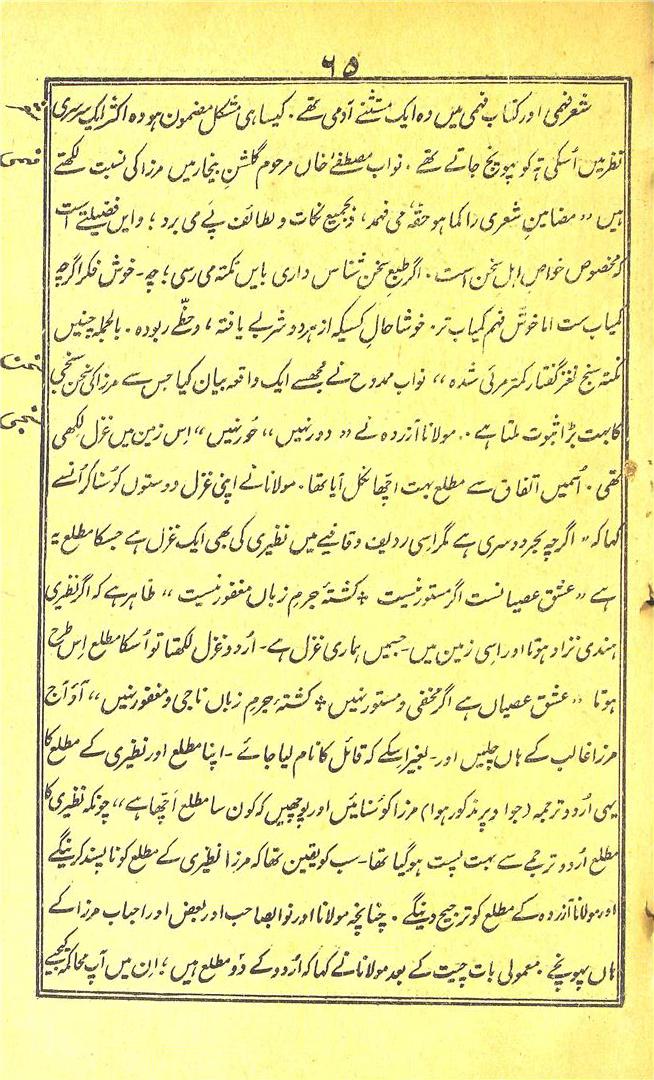 ۶۵
شعر فہمی اور کتاب فہمی میں وہ ایک مستثنے آدمی تھے۔ کیسا ہی مشکل مضمون ہو وہ اکثر ایک سرسری
نظر میں اُسکی تہ کو پہونچ جاتے تھے۔ نواب مصطفےٰ خاں مرحوم گلشنِ بیخار میں مرزا کی نسبت لکھتے
ہیں "مضامینِ شعری را کما ہو حقّہٗ می فہمد، و بجمیع نکات و لطائف پَے می برد؛ و ایں فضیلتے است
کہ مخصوص خواص اہل سخن است۔ اگر طبع سخن شناس داری بایں نکتہ می رسی؛ چہ۔ خوش فکر اگرچہ
کمیاب ست اما خوش فہم کمیاب تر۔ خوشا حالِ کسیکہ از ہر دو شربے یافتہ، و حظّے ربودہ۔ بالجملہ چنیں
نکتہ سنج نغز گفتار کمتر مرئی شدہ" نواب ممدوح نے مجھسے ایک واقعہ بیان کیا جس سے مرزا کی سخن سنجی
کا بہت بڑا ثبوت ملتا ہے۔ مولانا آزردہ نے "دور نہیں" "حُور نہیں" اِس زمین میں غزل لکھی
تھی۔ اُسمیں اتفاق سے مطلع بہت اچھا نکل آیا تھا۔ مولانا نے اپنی غزل دوستوں کو سُنا کر اُنسے
کہا کہ "اگرچہ بحر دوسری ہے مگر اسی ردیف و قافیے میں نظیری کی بھی ایک غزل ہے جسکا مطلع یہ
ہے "عشق عصیانست اگر مستور نیست ؞ کشتۂ جرمِ زباں مغفور نیست" ظاہر ہے کہ اگر نظیری
ہندی نژاد ہوتا اور اسی زمین میں۔ جسمیں ہماری غزل ہے۔ اُردو غزل لکھتا تو اُسکا مطلع اِس طرح
ہوتا "عشق عصیاں ہے اگر مخفی و مستور نہیں ؞ کشتۂ جرمِ زباں ناجی و مغفور نہیں" آؤ آج
مرزا غالب کے ہاں چلیں اور۔ بغیر اسکے کہ قائل کا نام لیا جائے۔ اپنا مطلع اور نظیری کے مطلع کا
یہی اُردو ترجمہ (جو اوپر مذکور ہوا) مرزا کو سُنائیں اور پوچھیں کہ کون سا مطلع اچھا ہے" چونکہ نظیری کا
مطلع اُردو ترجمے سے بہت پست ہو گیا تھا۔ سب کو یقین تھا کہ مرزا نظیری کے مطلع کو ناپسند کرینگے
اور مولانا آزردہ کے مطلع کو ترجیح دینگے۔ چنانچہ مولانا اور نوابصاحب اور بعض اور احباب مرزا کے
ہاں پہونچے۔ معمولی بات چیت کے بعد مولانا نے کہا کہ اُردو کے دو مطلع ہیں؛ اِن میں آپ محاکمہ کیجیے